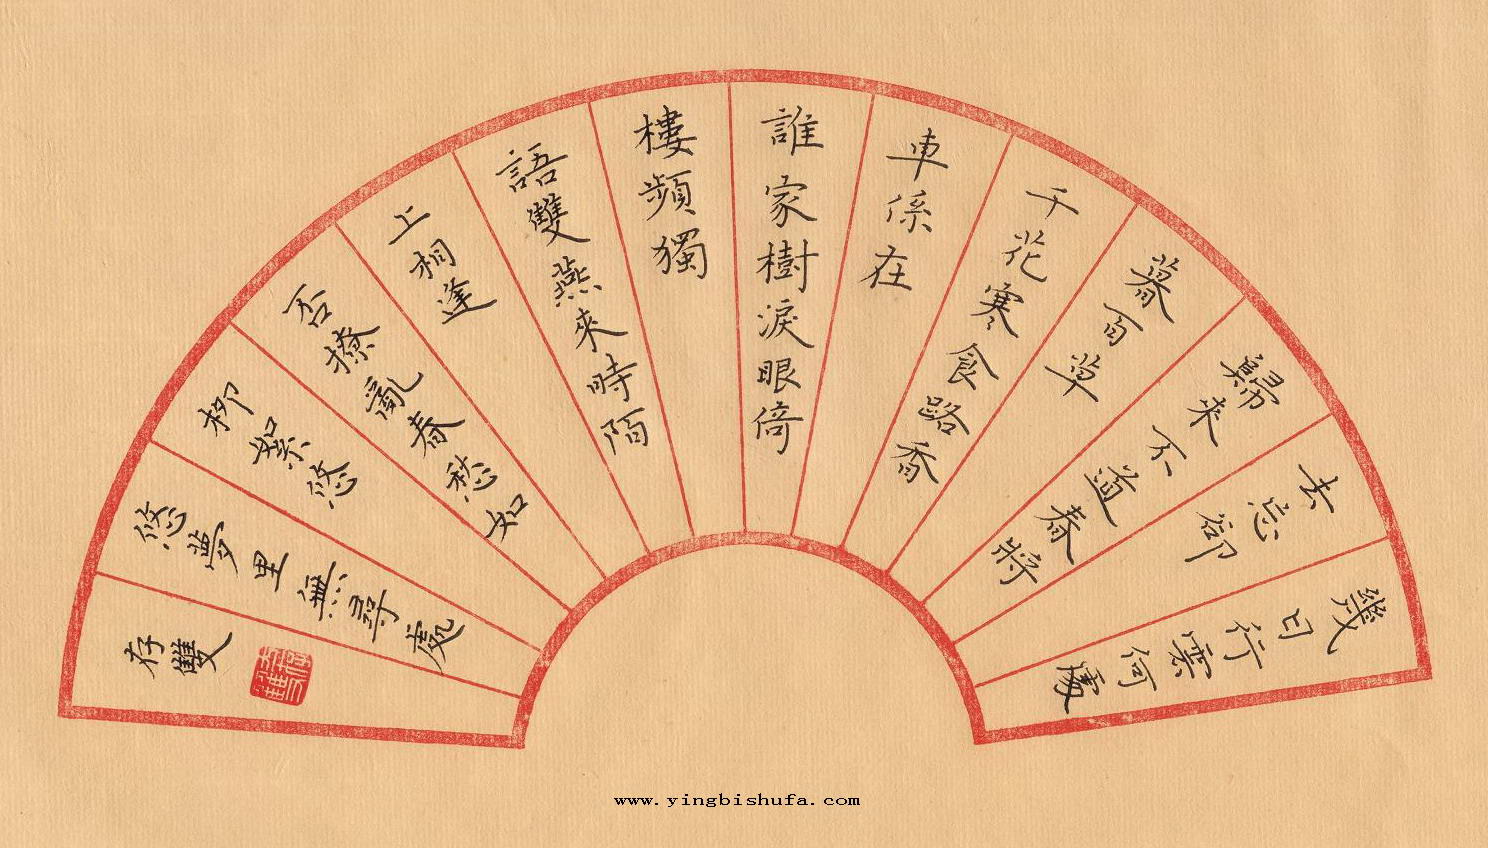 幾日行雲何處
去忘卻
歸來不道春將
暮百草
千花寒食路香
車係在
誰家樹淚眼倚
樓頻獨
語雙燕來時陌
上相逢
否撩亂春愁如
柳絮悠
悠夢里無尋處
存雙
www.yingbishufa.com